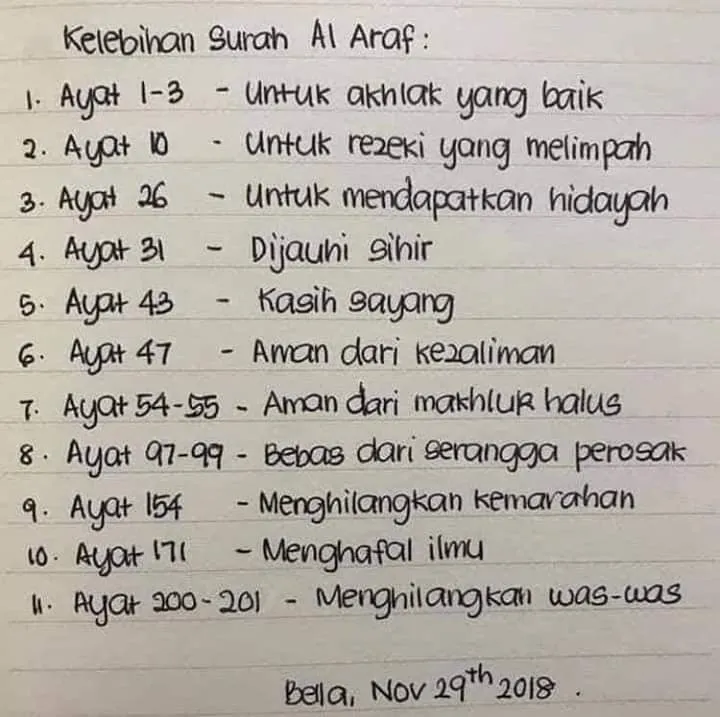 Kelebihan Surah Al Araf:
1. Ayat 1-3 - Untuk akhlak yang baik
2. Ayat 10 - Untuk rezeki yang melimpah
3. Ayat 26 - Untuk mendapatkan hidayah
4. Ayat 31 - Dijauhi sihir
5. Ayat 43 - Kasih sayang
6. Ayat 47 - Aman dari kezaliman
7. Ayat 54-55 - Aman dari makhluk halus
8. Ayat 97-99 - Bebas dari serangga perosak
9. Ayat 154 - Menghilangkan kemarahan
10. Ayat 171 - Menghafal ilmu
11. Ayat 200-201 - Menghilangkan was-was
Bella, Nov 29th 2018.